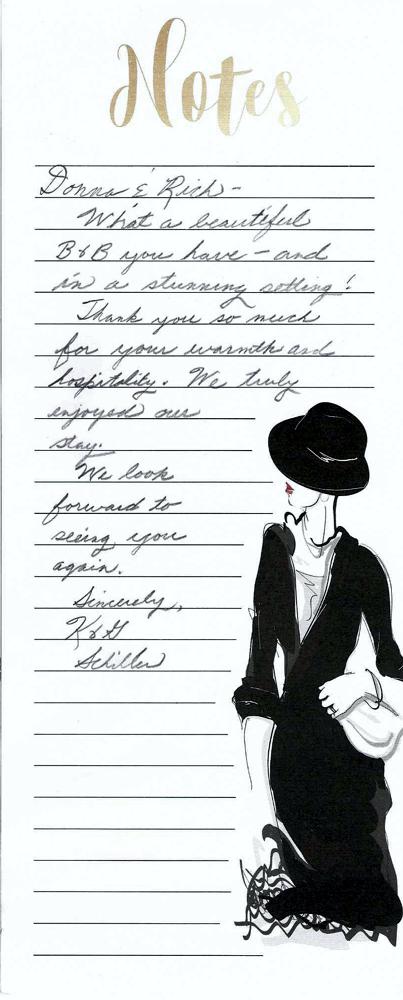 Notes
Donna & Rich -
What a beautiful
B&B you have - and
in a stunning setting!
Thank you so much
for your warmth and
hospitality. We truly
enjoyed our
stay.
We look
forward to
seeing you
again.
Sincerely,
K&G
Schiller